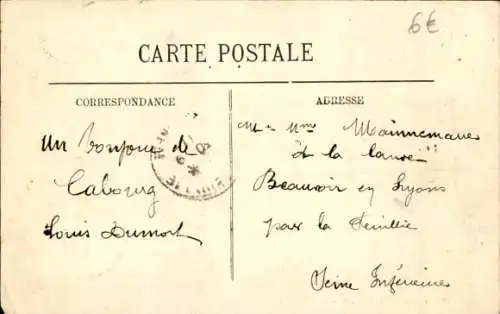 6€
CARTE POSTALE
CORRESPONDANCE
ADRESSE
Un bonjour de
Cabourg
Louis Dumort
Mr Mme Mainnemare
et la
Beauvoir en Lyons
par la Feuillie
Seine Inférieure